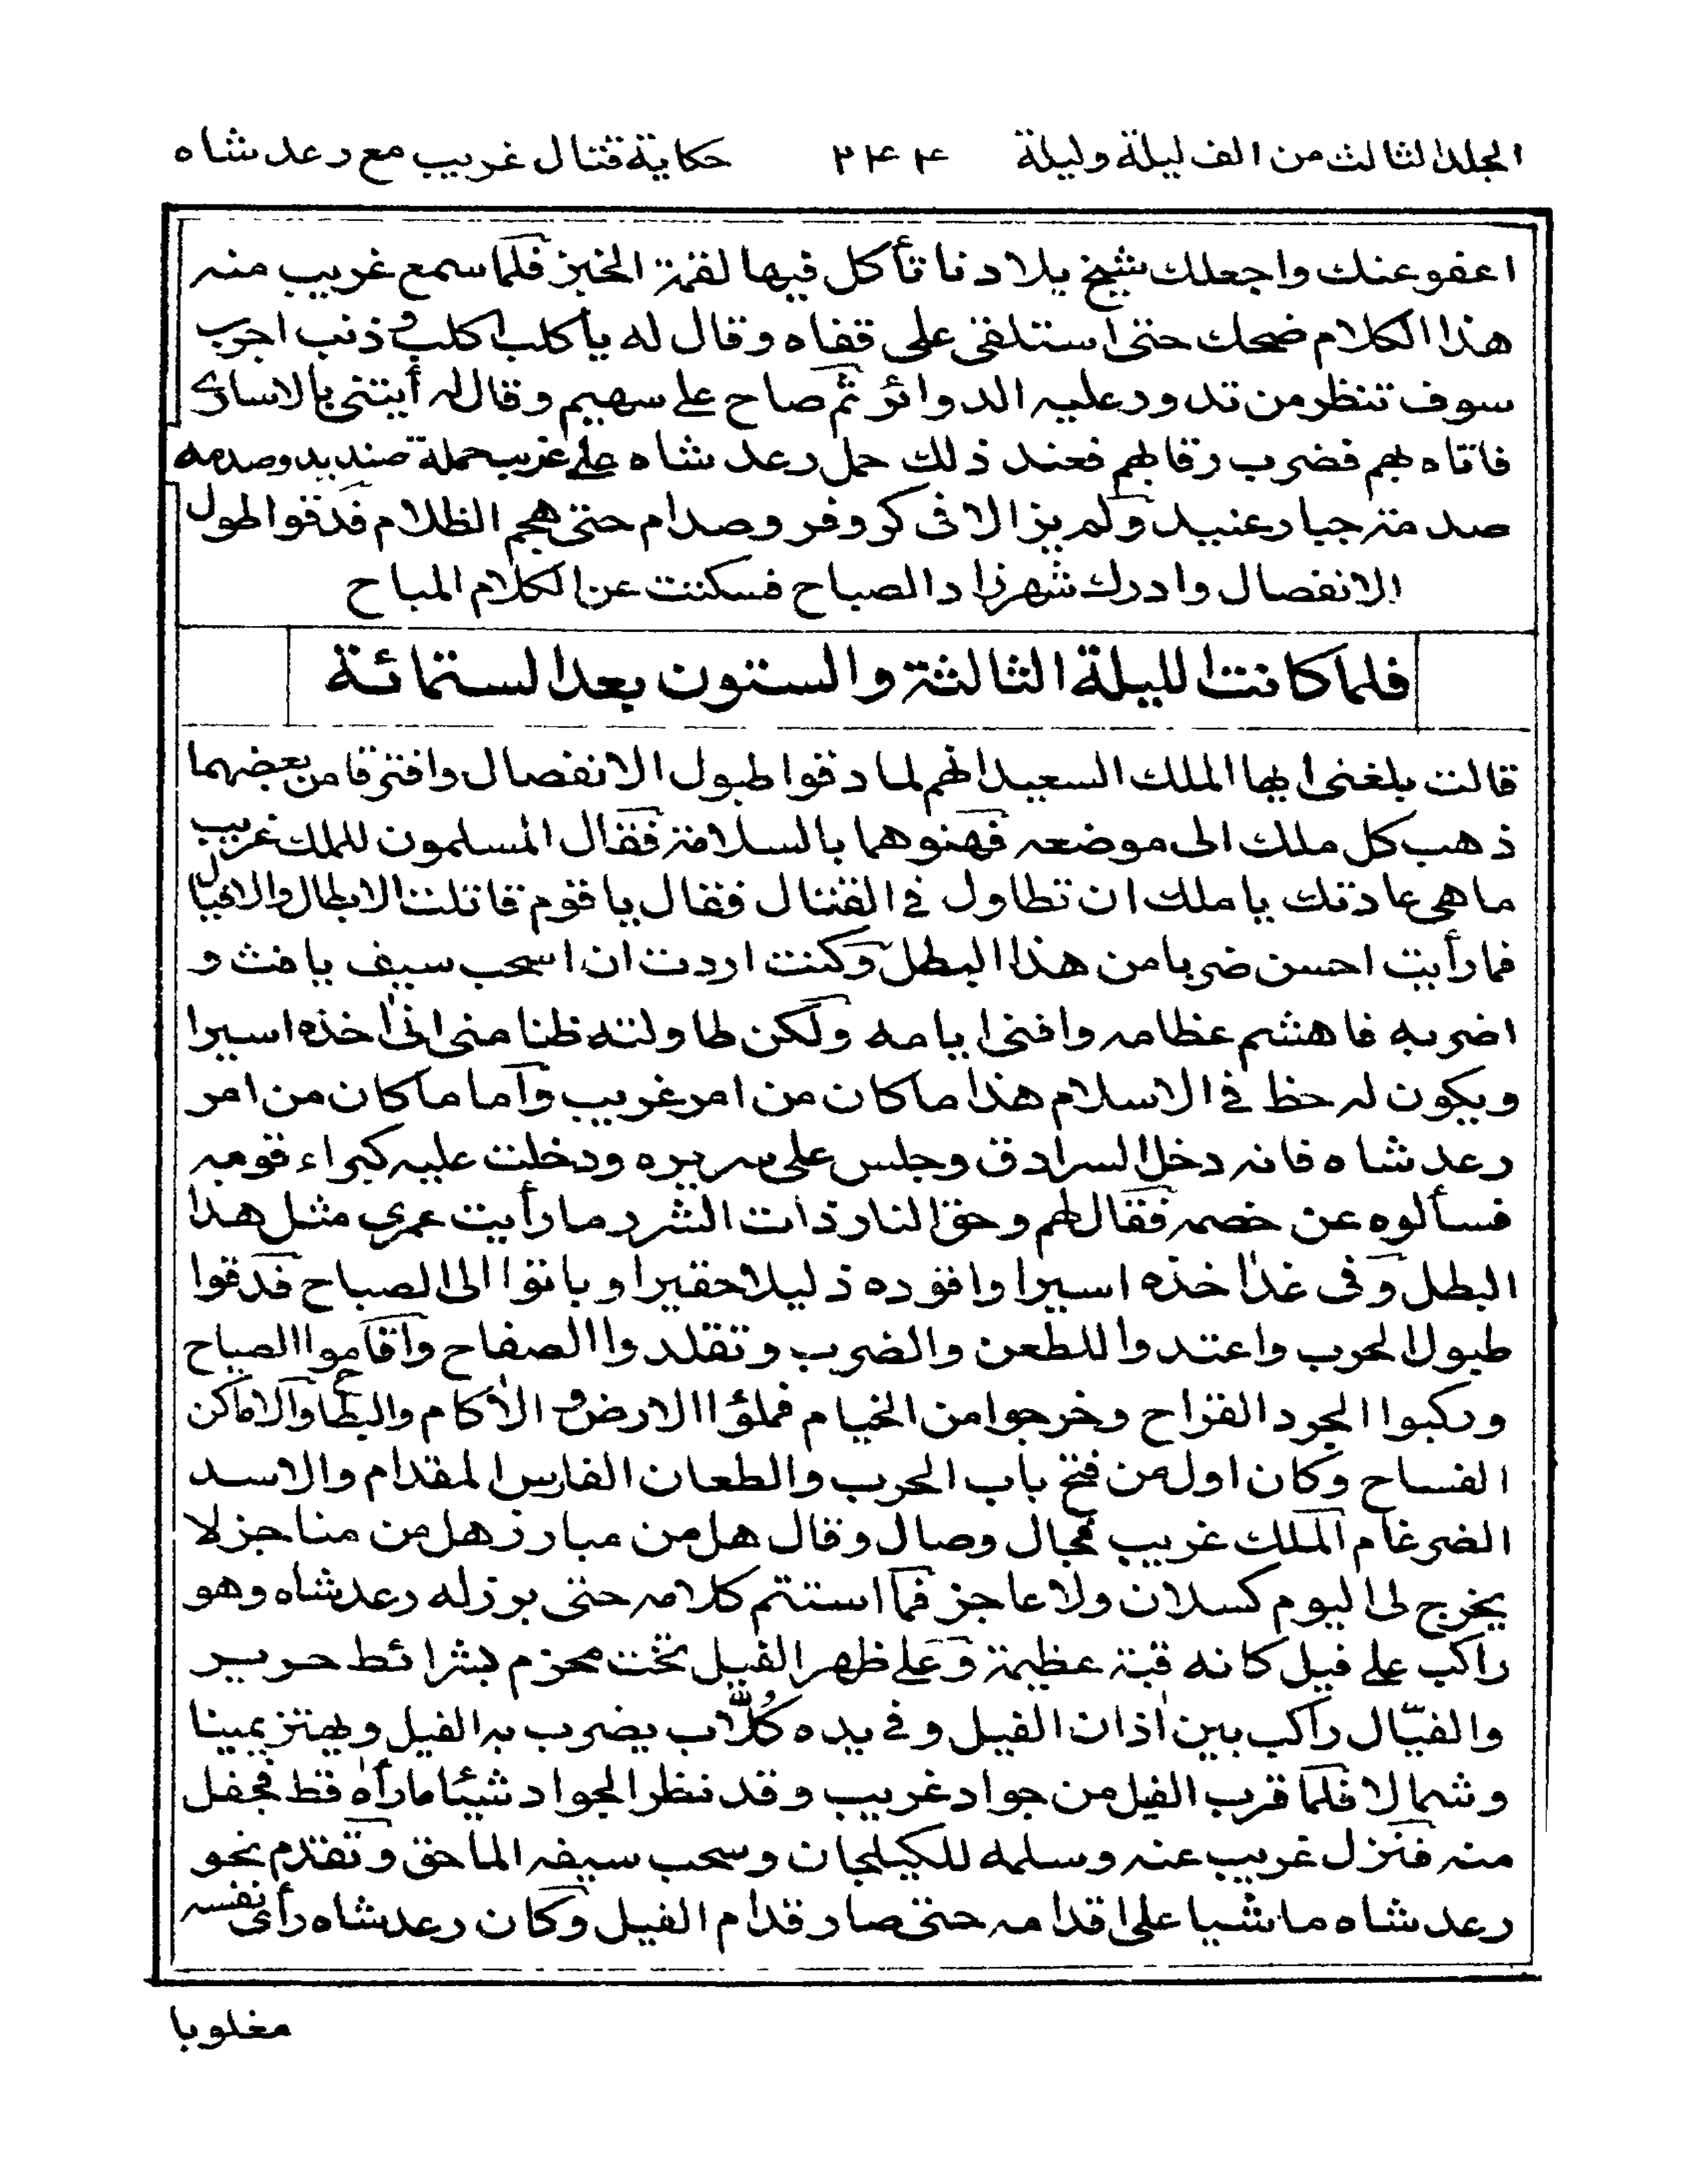 المجلد الثالث من الف ليلة وليلة ٢٤٤ حكاية قتال غريب مع رعد شاه
اعفو عنك واجعلك شيخ بلادنا تأكل فيها لقمة الخبز فلما سمع غريب منه
هذا الكلام ضحك حتى استلقى على قفاه وقال له يا كلب اكلب و ذئب اجرب
سوف تنظر من تدور عليه الدوائر ثم صاح على سهيم وقال له أيتنى بالاسارى
فاتاه بهم فضرب رقابهم فعند ذلك حمل رعد شاه على غريب حملة صنديد وصدمه
صدمة جبار عنيد ولم يزالا فى كر وفر وصدام حتى هجم الظلام فدقوا طبول
الانفصال وادرك شهرزاد الصباح فسكتت عن الكلام المباح
فلما كانت الليلة الثالثة والستون بعد الستمائة
قالت بلغنى ايها الملك السعيد انهم لما دقوا طبول الانفصال وافترقا من بعضهما
ذهب كل ملك الى موضعه فهنوهما بالسلامة فقال المسلمون للملك غريب
ما هى عادتك يا ملك ان تطاول فى القتال فقال يا قوم قاتلت الابطال والاقيال
فما رأيت احسن ضربا من هذا البطل وكنت اردت ان اسحب سيف يافث و
اضربه فاهشم عظامه وافنى ايامه ولكن طاولته ظنا منى انى اٰخذه اسيرا
ويكون له حظ فى الاسلام هذا ما كان من امر غريب وأما ما كان من امر
رعد شاه فانه دخل السرادق وجلس على سريره ودخلت عليه كبراء قومه
فسألوه عن خصمه فقال لهم وحق النار ذات الشرر ما رأيت عمرى مثل هذا
البطل وفى غد اٰخذه اسيرا واقوده ذليلا حقيرا وباتوا الى الصباح فدقوا
طبول الحرب واعتدوا للطعن والضرب وتقلدوا الصفاح واقاموا الصياح
وركبوا الجرد القراح وخرجوا من الخيام فملؤا الارض و الاٰكام والبطاح والاماكن
الفساح وكان اول من فتح باب الحرب والطعان الفارس المقدام والاسد
الضرغام الملك غريب فجال وصال وقال هل من مبارز هل من مناجز لا
يخرج لى اليوم كسلان ولا عاجز فما استتم كلامه حتى برز له رعد شاه وهو
راكب على فيل كانه قبة عظيمة وعلى ظهر الفيل تخت محزم بشرائط حرير
والفيّال راكب بين اٰذان الفيل وفى يده كُلّاب يضرب به الفيل ويهتز يمينا
وشمالا فلما قرب الفيل من جواد غريب وقد نظر الجواد شيئا ما رأٰه قط فجفل
منه فنزل غريب عنه وسلمه للكيلجان وسحب سيفه الماحق وتقدم نحو
رعد شاه ماشيا على اقدامه حتى صار قدام الفيل وكان رعد شاه رأى نفسه
مغلوبا